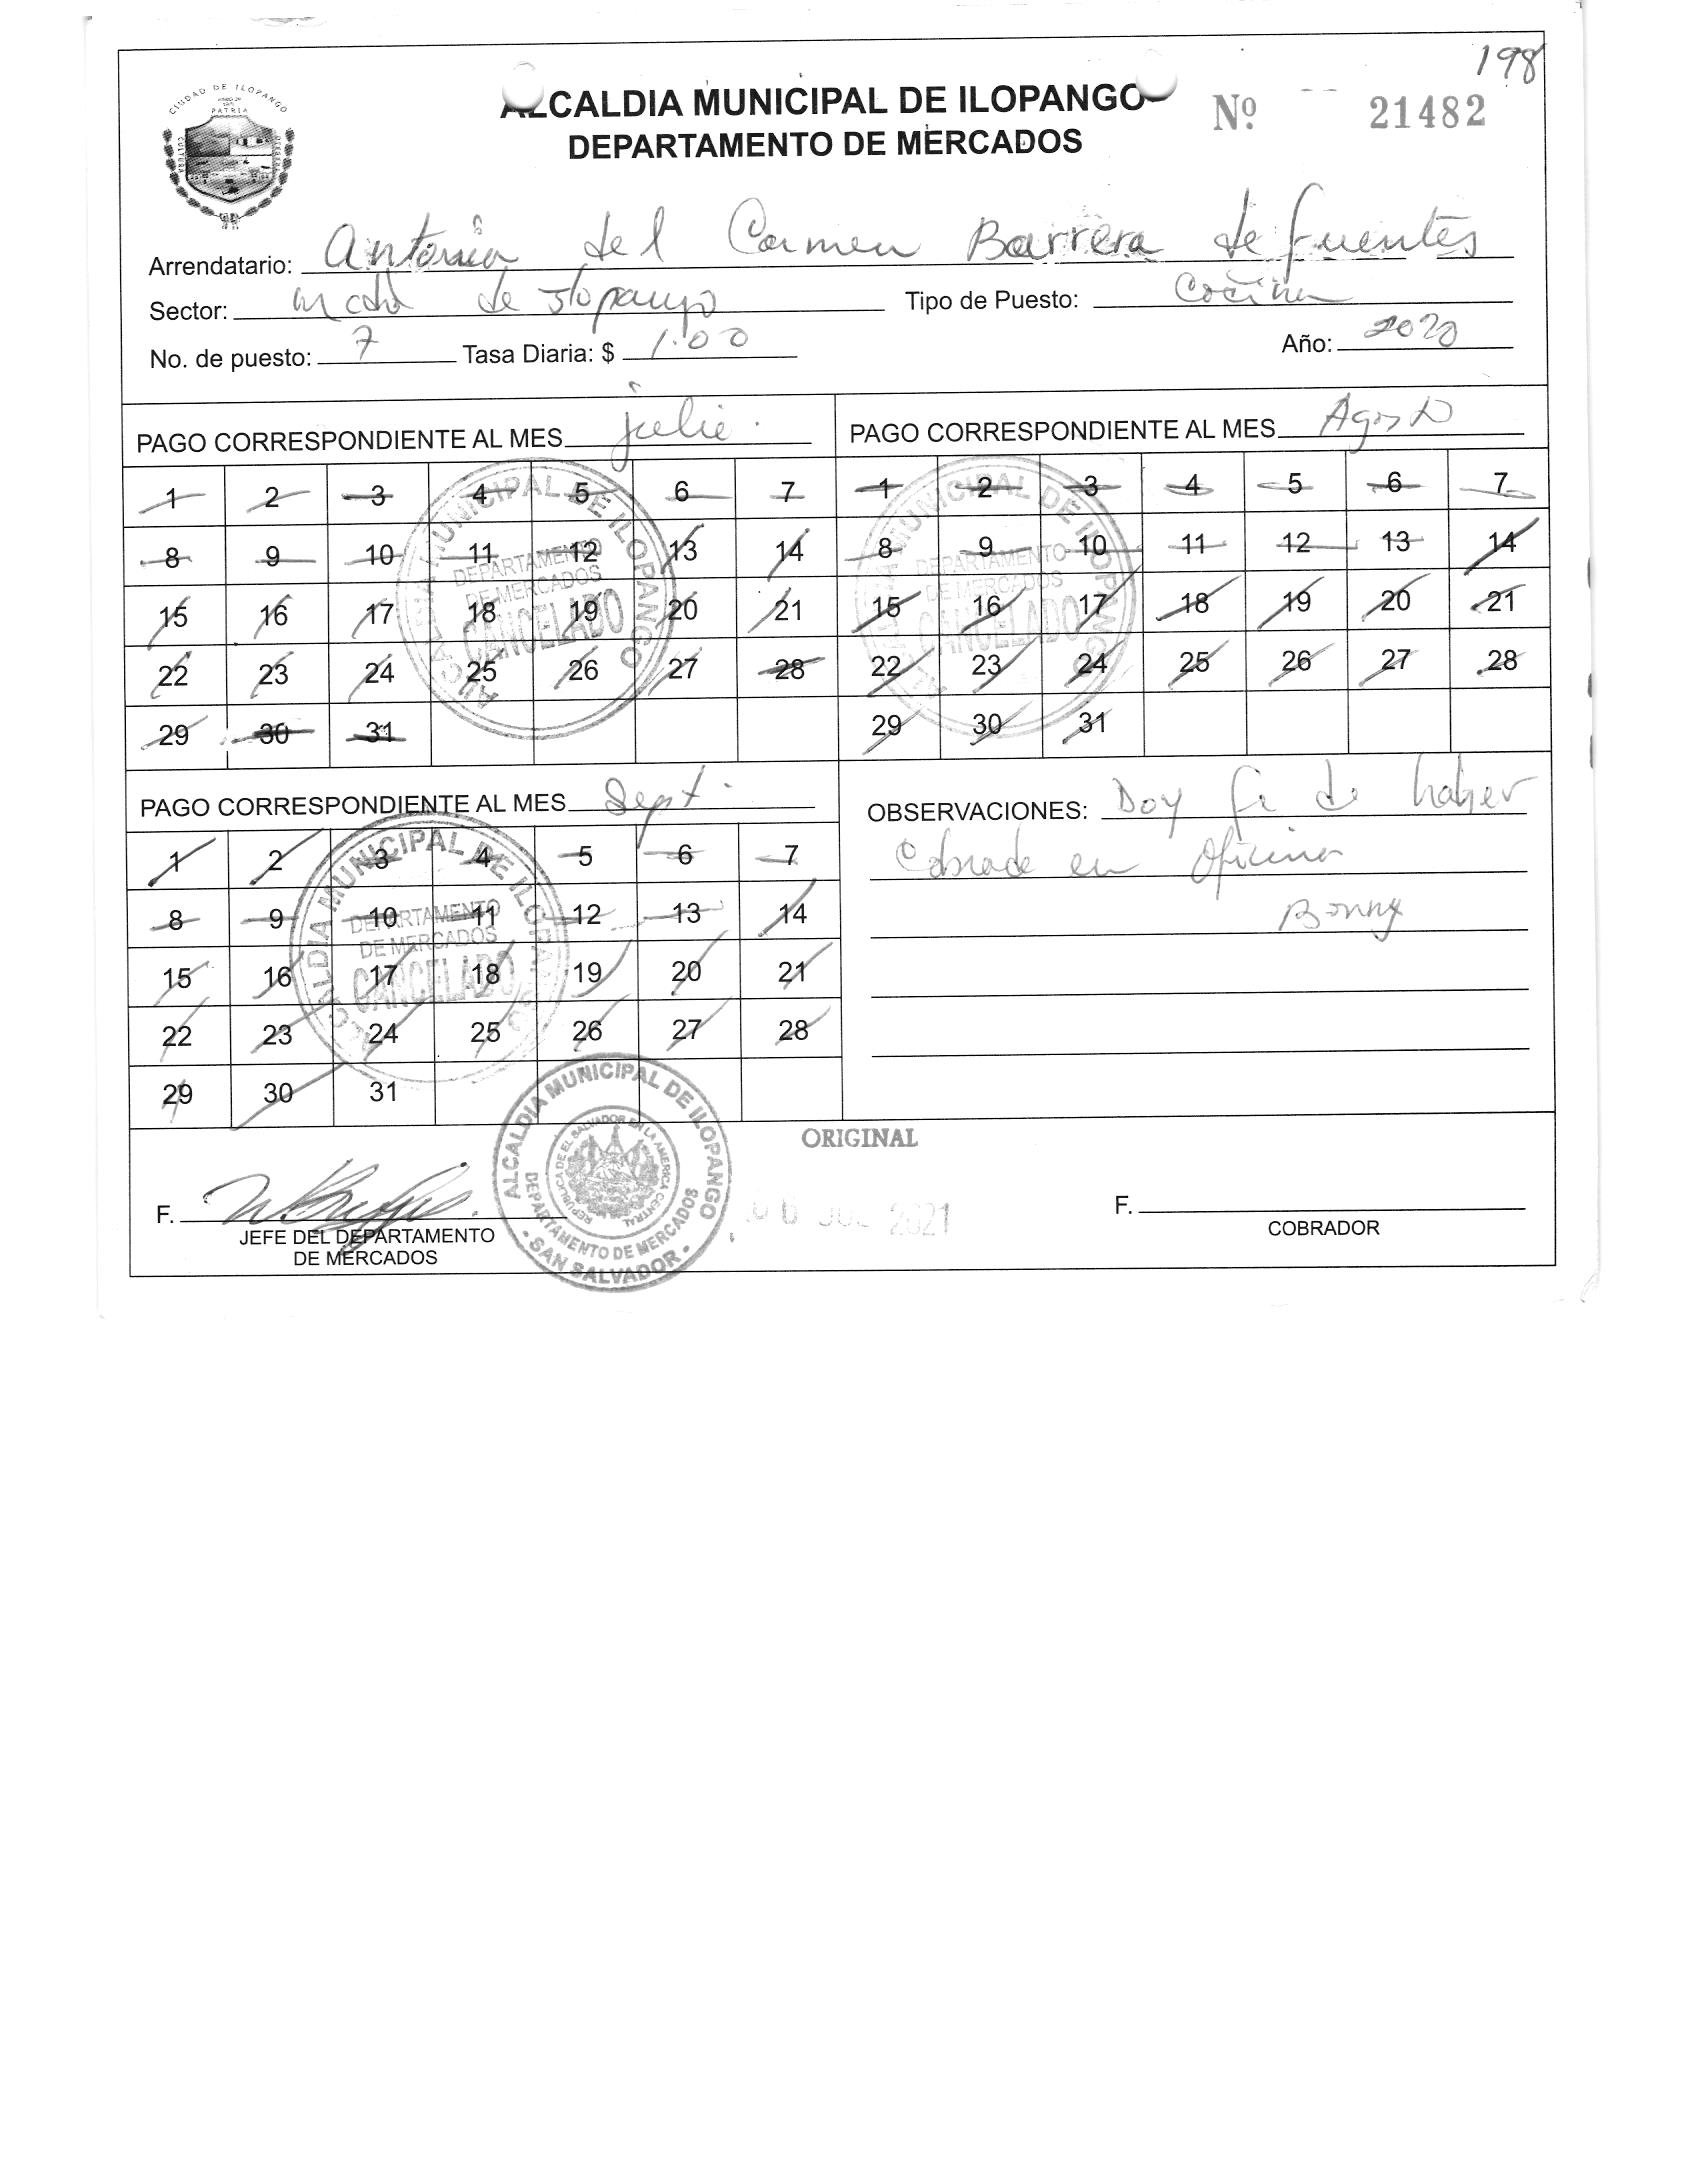 198
CIUDAD DE ILOPANGO
PATRIA
CULTURA
ALCALDIA MUNICIPAL DE ILOPANGO
DEPARTAMENTO DE MERCADOS
Nº 21482
Arrendatario: Antonia del Carmen Barrera de Fuentes
Sector: de Ilopango Tipo de Puesto: Cocina
No. de puesto: 7 Tasa Diaria: $ 1.00 Año: 2020
PAGO CORRESPONDIENTE AL MES julio. PAGO CORRESPONDIENTE AL MES Agosto
1 2 3 4 5 6 7 1 2 3 4 5 6 7
8 9 10 11 12 13 14 8 9 10 11 12 13 14
15 16 17 18 19 20 21 15 16 17 18 19 20 21
22 23 24 25 26 27 28 22 23 24 25 26 27 28
29 30 31 29 30 31
ALCALDIA MUNICIPAL DE ILOPANGO
DEPARTAMENTO
DE MERCADOS
CANCELADO
ALCALDIA MUNICIPAL DE ILOPANGO
DEPARTAMENTO
DE MERCADOS
CANCELADO
PAGO CORRESPONDIENTE AL MES Sept.
1 2 3 4 5 6 7
8 9 10 11 12 13 14
15 16 17 18 19 20 21
22 23 24 25 26 27 28
29 30 31
ALCALDIA MUNICIPAL DE ILOPANGO
DEPARTAMENTO
DE MERCADOS
CANCELADO
OBSERVACIONES: Doy fe de haber
Cobrado en Oficina
Bonny
ORIGINAL
F.
JEFE DEL DEPARTAMENTO
DE MERCADOS
ALCALDIA MUNICIPAL DE ILOPANGO
REPUBLICA DE EL SALVADOR EN LA AMERICA CENTRAL
DEPARTAMENTO DE MERCADOS
· SAN SALVADOR ·
06 JUL 2021
F.
COBRADOR